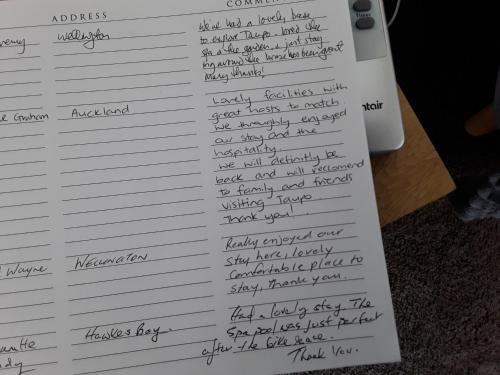 ADDRESS
Wellington
We've had a lovely base
to explore Taupo. loved the
spa & the garden & just stay
ing around the house has been great
Many thanks!
Timer
Graham
Auckland
Lovely facilities with
great hosts to match.
We throughly enjoyed
our stay and the
hospitality.
We will definitly be
back and will reccomend
to family and friends
visiting Taupo
Thank you!
Wayne
WELLINGTON
Really enjoyed our
stay here, lovely
comfortable place to
stay, thank you.
Hawkes Bay.
Had a lovely stay. The
Spa pool was just perfect
after the bike race.
Thank you.